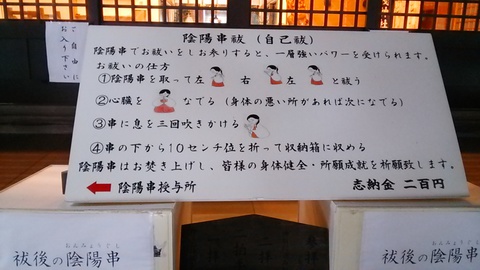 ご自由に
お入り下さい
陰陽串祓(自己祓)
陰陽串でお祓いをしお参りすると、一層強いパワーを受けられます。
お祓いの仕方
①陰陽串を取って左 右 左 と祓う
②心臓を なでる(身体の悪い所があれば次になでる)
③串に息を三回吹きかける
④串の下から10センチ位を折って収納箱に収める
陰陽串はお焚き上げし、皆様の身体健全・所願成就を祈願致します。
陰陽串授与所 志納金 二百円
おんみょうぐし
祓後の陰陽串
おんみょうぐし
祓後の陰陽串